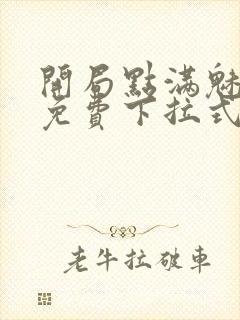 開局點滿魅
免費下拉式
老牛拉破車